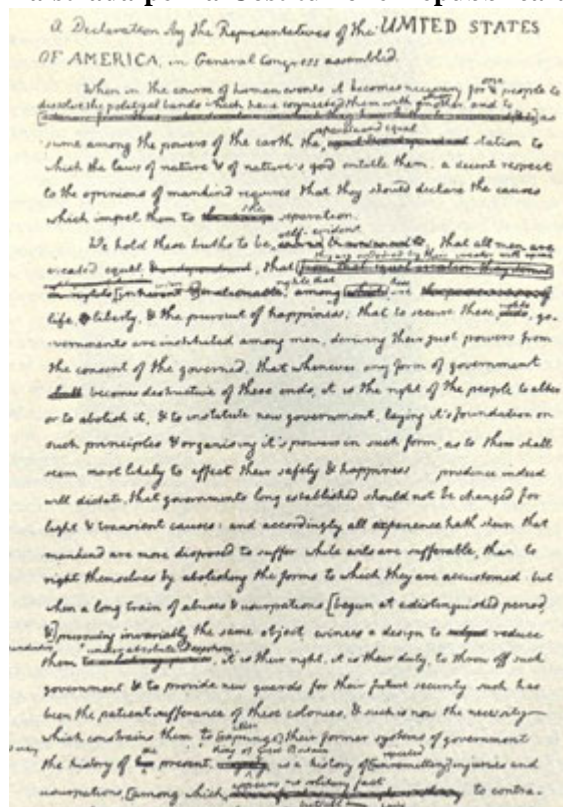 A Declaration by the Representatives of the UNITED STATES
OF AMERICA, in General Congress assembled.
When in the course of human events it becomes necessary for one people to
dissolve the political bands which have connected them with another, and to
as
sume among the powers of the earth the separate and equal station to
which the laws of nature & of nature's god entitle them, a decent respect
to the opinions of mankind requires that they should declare the causes
which impel them to the separation.
We hold these truths to be self-evident, that all men are
created equal, that they are endowed by their creator with
[inherent &] inalienable rights that among these are
life, liberty, & the pursuit of happiness; that to secure these rights, go-
vernments are instituted among men, deriving their just powers from
the consent of the governed, that whenever any form of government
shall becomes destructive of these ends, it is the right of the people to alter
or to abolish it, & to institute new government, laying it's foundation on
such principles & organising it's powers in such form, as to them shall
seem most likely to effect their safety & happiness prudence indeed
will dictate that governments long established should not be changed for
light & transient causes: and accordingly all experience hath shewn that
mankind are more disposed to suffer while evils are sufferable, than to
right themselves by abolishing the forms to which they are accustomed. but
when a long train of abuses & usurpations [begun at a distinguished period,
&] pursuing invariably the same object, evinces a design to reduce
them under absolute Despotism, it is their right, it is their duty, to throw off such
government & to provide new guards for their future security. such has
been the patient sufferance of these colonies, & such is now the necessity
which constrains them to alter [expunge] their former systems of government
the history of the present king of Great Britain is a history of repeated [unremitting] injuries and
usurpations, [among which, to contra-